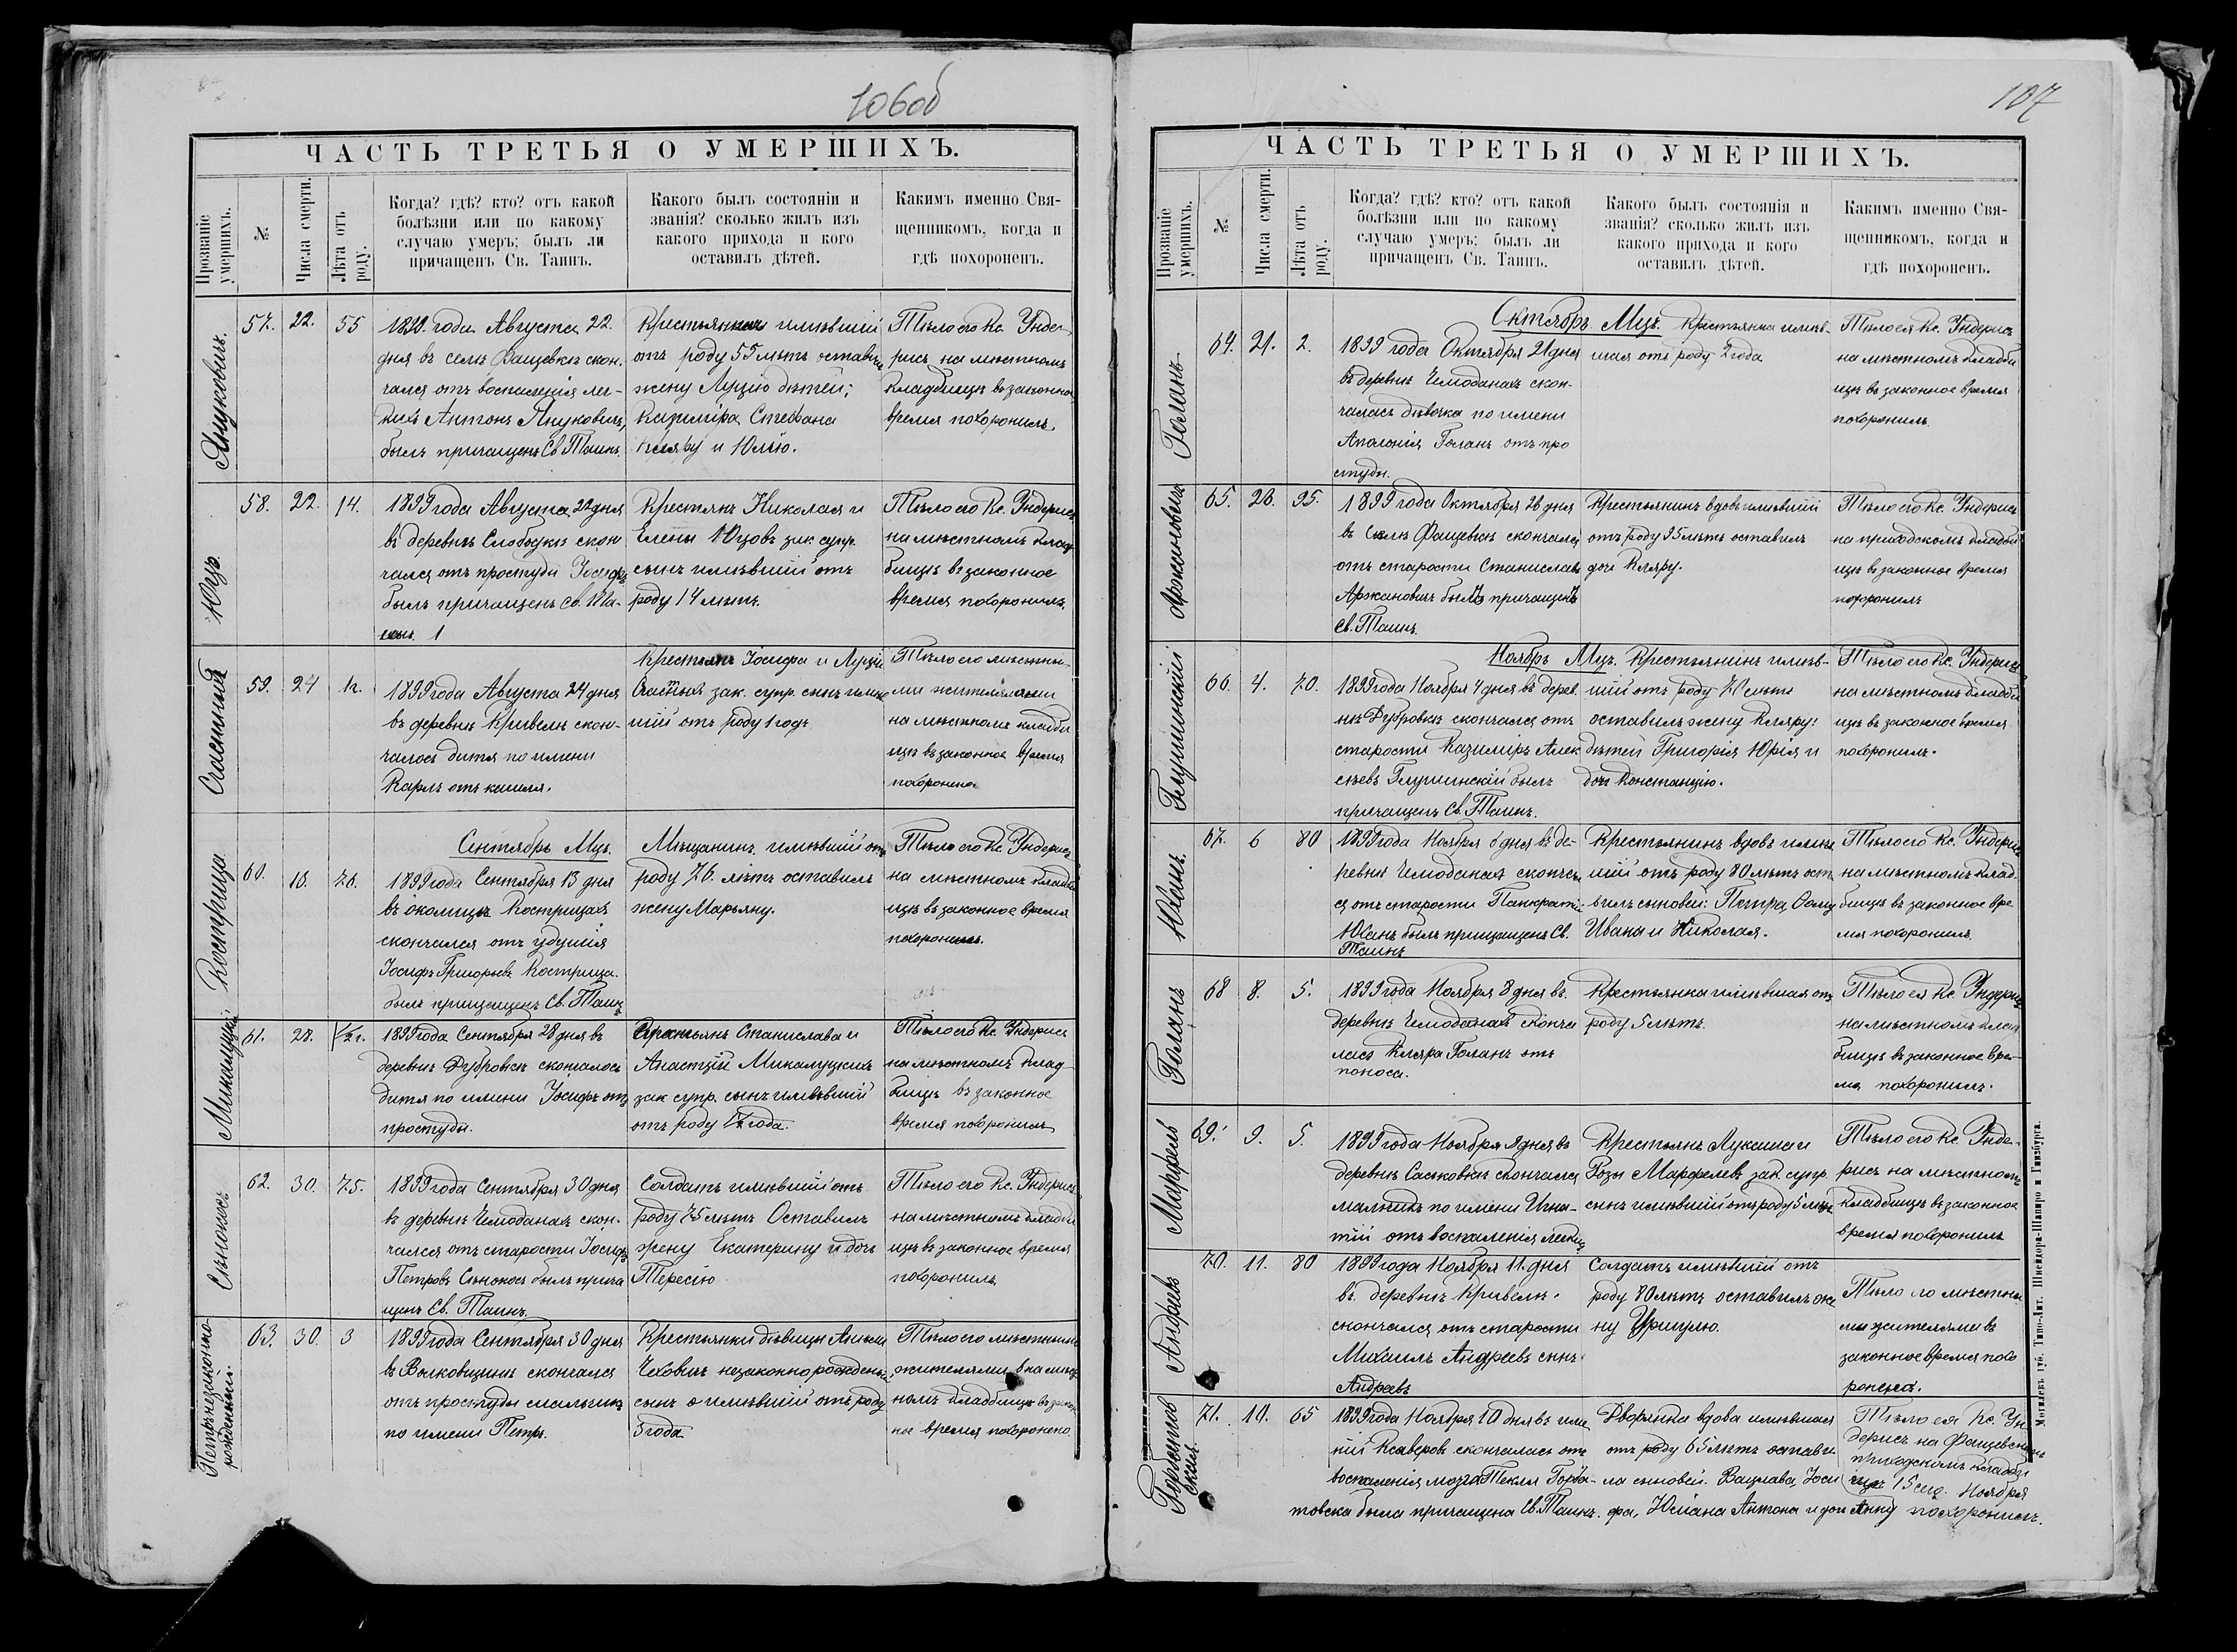 106об
ЧАСТЬ ТРЕТЬЯ О УМЕРШИХЪ.
Прозваніе умершихъ.
№
Числа смерти.
Лѣта отъ роду.
Когда? гдѣ? кто? отъ какой
болѣзни или по какому
случаю умеръ; былъ ли
причащенъ Св. Таинъ.
Какого былъ состоянія и
званія? сколько жилъ изъ
какого прихода и кого
оставилъ дѣтей.
Какимъ именно Свя-
щенникомъ, когда и
гдѣ похороненъ.
Януковичъ.
57. 22. 55
1899. года Августа 22.
дня въ селѣ Фащевкѣ скон.
чался отъ воспаленія лег-
кихъ Антонъ Януковичъ,
былъ причащенъ Св Таинъ.
Крестьянинъ имѣвшій
отъ роду 55 лѣтъ оставилъ
жену Луцію дѣтей;
Казиміра, Стефана
Кляру и Юлію.
Тѣло его Кс. Ундерисъ
на мѣстномъ
кладбищѣ въ законное
время похоронилъ.
Юцъ.
58. 22. 14.
1899 года Августа 22 дня
въ деревнѣ Слободкѣ скон
чался отъ простуды Іосифъ
былъ причащенъ Св. Та-
инъ.
Крестьянъ Николая и
Елены Юцовъ зак. супр.
сынъ имѣвшій отъ
роду 14 лѣтъ.
Тѣло его Кс. Ундерисъ
на мѣстномъ клад
бищѣ въ законное
время похоронилъ.
Счастный
59. 24 1г.
1899 года Августа 24 дня
въ деревнѣ Кривелѣ скон-
чалось дитя по имени
Карлъ отъ кашля.
Крестьянъ Іосифа и Луціи
Счастныхъ зак. супр. сынъ имѣв
шій отъ роду 1 годъ
Тѣло его мѣстны-
ми жителями
на мѣстномъ кладби
щѣ въ законное время
похоронено.
Кострица
60. 13. 76.
Сентябрь Мцъ.
1899 года Сентября 13 дня
въ околицѣ Кострицахъ
скончался отъ удушія
Іосифъ Григорьевъ Кострица.
былъ прищащенъ Св. Таинъ
Мѣщанинъ имѣвшій отъ
роду 76. лѣтъ оставилъ
жену Марьяну.
Тѣло его Кс. Ундерисъ
на мѣстномъ кладби
щѣ въ законное время
похоронилъ.
Микалуцкій
61. 28. 1/2 г.
1899 года Сентября 28 дня въ
деревнѣ Дубровкѣ скончалось
дитя по имени Іосифъ отъ
простуды.
Крестьянъ Станислава и
Анастціи Микалуцкихъ
зак супр. сынъ имѣвшій
отъ роду 1/2 года.
Тѣло его Кс. Ундерисъ
на мѣстномъ клад-
бищѣ въ законное
время похоронилъ
Сѣнокосъ
62. 30. 75.
1899 года Сентября 30 дня
въ деревнѣ Чемоданахъ скон-
чался отъ старости Іосифъ
Петровъ Сѣнокосъ былъ прича
щенъ Св. Таинъ.
Солдатъ имѣвшій отъ
роду 75 лѣтъ Оставилъ
жену Екатерину и дочь
Тересію
Тѣло его Кс. Ундерисъ
на мѣстномъ кладби
щѣ въ законное время
похоронилъ
Петръ незаконно-
рожденный.
63. 30. 3
1899 года Сентября 30 дня
въ Волковщинѣ скончался
отъ простуды мальчикъ
по имени Петръ.
Крестьянки дѣвицы
Чеховичъ незаконнорожденный
сынъ имѣвшій отъ роду
3 года
Тѣло его мѣстными
жителями на мѣст
номъ кладбищѣ въ закон
ное время похоронено
107
ЧАСТЬ ТРЕТЬЯ О УМЕРШИХЪ.
Прозваніе умершихъ.
№
Числа смерти.
Лѣта отъ роду.
Когда? гдѣ? кто? отъ какой
болѣзни или по какому
случаю умеръ; былъ ли
причащенъ Св. Таинъ.
Какого былъ состоянія и
званія? сколько жилъ изъ
какого прихода и кого
оставилъ дѣтей.
Какимъ именно Свя-
щенникомъ, когда и
гдѣ похороненъ.
Голанъ
64. 21. 2.
Октябрь Мцъ.
1899 года Октября 21 дня
въ деревнѣ Чемоданахъ скон-
чалась дѣвочка по имени
Аполонія Голанъ отъ про
студы.
Крестьянка имѣв-
шая отъ роду 2 года
Тѣло ея Кс. Ундерисъ
на мѣстномъ кладби
щѣ въ законное время
похоронилъ.
Аржановичъ
65. 26. 95.
1899 года Октября 26 дня
въ Селѣ Фащевкѣ скончался
отъ старости Станиславъ
Аржановичъ былъ причащенъ
Св. Таинъ.
Крестьянинъ вдовъ имѣвшій
отъ роду 95 лѣтъ оставилъ
дочь Кляру.
Тѣло его Кс. Ундерисъ
на приходскомъ кладби
щѣ въ законное время
похоронилъ
Глушинскій
66. 4. 70.
Ноябрь Мцъ.
1899 года Ноября 4 дня въ дерев.
нѣ Дубровкѣ скончался отъ
старости Казиміръ Алек
сѣевъ Глушинскій былъ
причащенъ Св. Таинъ.
Крестьянинъ имѣв-
шій отъ роду 70 лѣтъ
оставилъ жену Кляру:
дѣтей Григорія Юрія и
дочь Констанцію.
Тѣло его Кс. Ундерисъ
на мѣстномъ кладби
щѣ въ законное время
похоронилъ.
Юханъ.
67. 6 80
1899 года Ноября 6 дня въ де-
ревнѣ Чемоданахъ скончал
ся отъ старости Панкратій
Юханъ былъ прищащенъ Св.
Таинъ
Крестьянинъ вдовъ имѣв
шій отъ роду 80 лѣтъ оста
вилъ сыновей: Петра, Ѳому
Ивана и Николая.
Тѣло его Кс. Ундерисъ
на мѣстномъ клад.
бищѣ въ законное вре
мя похоронилъ.
Голанъ
68 8. 5.
1899 года Ноября 8 дня въ
деревнѣ Чемоданахъ сконча
лась Кляра Голанъ отъ
поноса.
Крестьянка имѣвшая отъ
роду 5 лѣтъ.
Тѣло ея Кс. Ундерисъ
на мѣстномъ клад
бищѣ въ законное вре-
мя похоронилъ.
Марфель
69. 9. 5.
1899 года Ноября 9 дня въ
деревнѣ Саськовкѣ скончался
мальчикъ по имени Игна-
тій отъ воспаленія легкихъ
Крестьянъ Лукаша и
Розы Марфелевъ зак. супр.
сынъ имѣвшій отъ роду 5 лѣтъ
Тѣло его Кс. Унде-
рисъ на мѣстномъ
кладбищѣ въ законное
время похоронилъ
Андреевъ
70. 11. 80
1899 года Ноября 11. дня
въ деревнѣ Кривелѣ.
скончался отъ старости
Михаилъ Андреевъ сынъ
Андреевъ
Солдатъ имѣвшій отъ
роду 80 лѣтъ оставилъ же
ну
Тѣло его мѣстны
ми жителями въ
законное время похо
ронено.
Горбатов
ская
71. 10. 65
1899 года Ноября 10 дня въ имѣ
ніи Ксаверовѣ скончалась отъ
воспаленія мозга Текля Горба-
товска была причащена Св. Таинъ.
Дворянка вдова имѣвшая
отъ роду 65 лѣтъ остави
ла сыновей. Вацлава, Іоси
фа, Юліана Антона и дочь Анну
Тѣло ея Кс. Ун
дерисъ на Фащевскомъ
приходскомъ кладби
щѣ 15 сег. Ноября
похоронилъ.
Могилевъ губ. Типо-Лит. Шнейдора-Шапиро и Гинзбурга.